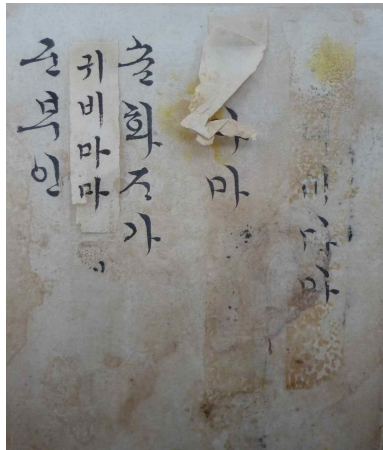 비마마
마
슌화ᄌᆞ가
귀비마마
군부인